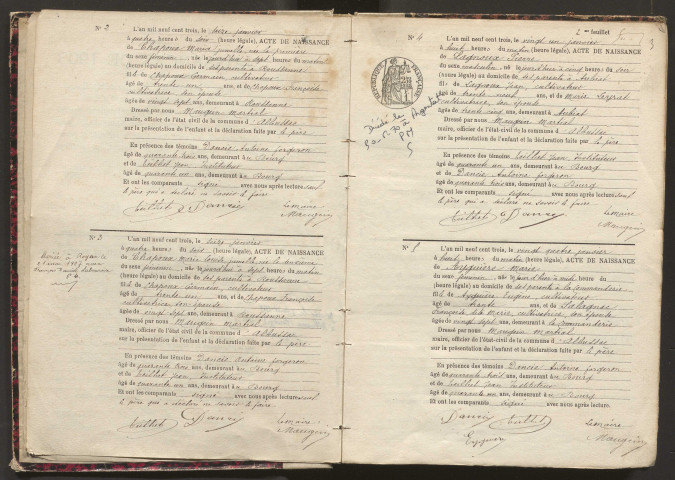 N° 2
L'an mil neuf cent trois, le seize janvier
à quatre heures du soir (heure légale), ACTE DE NAISSANCE
de Chapoux Marie jumelle, née la première
du sexe féminin, née jourd'hui à sept heures du matin
(heure légale) au domicile de ses parents à
fille de Chapoux Germain, cultivateur
âgé de trente un ans, et de Chapoux Françoise
cultivatrice son épouse
âgée de vingt sept ans, demeurant à
Dressé par nous Maugein Martial
maire, officier de l'état-civil de la commune d'Albussac
sur la présentation de l'enfant et la déclaration faite par le père
En présence des témoins Dancie Antoine forgeron
âgé de quarante trois ans, demeurant au Bourg
et de Teillet Jean Instituteur
âgé de quarante un ans, demeurant au Bourg
Et ont les comparants signé avec nous après lecture sauf
le père qui a déclaré ne savoir le faire.
Teillet Dancie Le maire
Maugein
N° 3
L'an mil neuf cent trois, le seize janvier
à quatre heures du soir (heure légale), ACTE DE NAISSANCE
de Chapoux Marie Louise jumelle, née la deuxième
du sexe féminin, née jourd'hui à sept heures du matin
(heure légale) au domicile de ses parents à
fille de Chapoux Germain, cultivateur
âgé de trente un ans, et de Chapoux Françoise
cultivatrice son épouse
âgée de vingt sept ans, demeurant à
Dressé par nous Maugein Martial
maire, officier de l'état-civil de la commune d'Albussac
sur la présentation de l'enfant et la déclaration faite par le père
En présence des témoins Dancie Antoine forgeron
âgé de quarante trois ans, demeurant au Bourg
et de Teillet Jean Instituteur
âgé de quarante un ans, demeurant au Bourg
Et ont les comparants signé avec nous après lecture sauf
le père qui a déclaré ne savoir le faire.
Teillet Dancie Le maire
Maugein
2me feuillet
3
N° 4
RÉPUBLIQUE FRANÇAISE
L'an mil neuf cent trois, le vingt un janvier
à huit heures du matin (heure légale), ACTE DE NAISSANCE
de Pierre
du sexe masculin, né à cinq heures du soir
(heure légale) au domicile de ses parents à
fils de Jean, cultivateur
âgé de trente ans, et de Marie
cultivatrice, son épouse
âgée de trente cinq ans, demeurant à
Dressé par nous Maugein Martial
maire, officier de l'état-civil de la commune d'Albussac
sur la présentation de l'enfant et la déclaration faite par le père
En présence des témoins Teillet Jean, Instituteur
âgé de quarante un ans, demeurant au Bourg
et de Dancie Antoine forgeron
âgé de quarante trois ans, demeurant au Bourg
Et ont les comparants signé avec nous après lecture sauf
le père qui a déclaré ne savoir le faire
Teillet Dancie Le maire
Maugein
L'an mil neuf cent trois, le vingt quatre janvier
(heure légale), ACTE DE NAISSANCE
de Marie
du sexe féminin, née heure du
(heure légale) au domicile de ses parents à la commanderie
fille de Eugène, cultivateur
âgé de trente ans, et de
Françoise Marie, cultivatrice, son épouse
âgée de vingt sept ans, demeurant à la commanderie
Dressé par nous Maugein Martial
maire, officier de l'état-civil de la commune d'Albussac
sur la présentation de l'enfant et la déclaration faite par le père
En présence des témoins Dancie Antoine forgeron
âgé de quarante trois ans, demeurant au Bourg
et de Teillet Jean Instituteur
âgé de quarante un ans, demeurant au Bourg
Et ont les comparants signé avec nous après lecture.
Dancie Teillet Le maire
Maugein